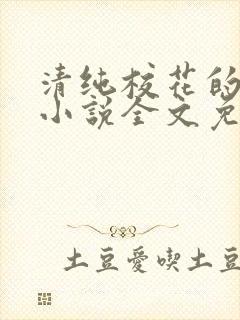 清纯校花的
小說全文免
土豆愛喫土豆